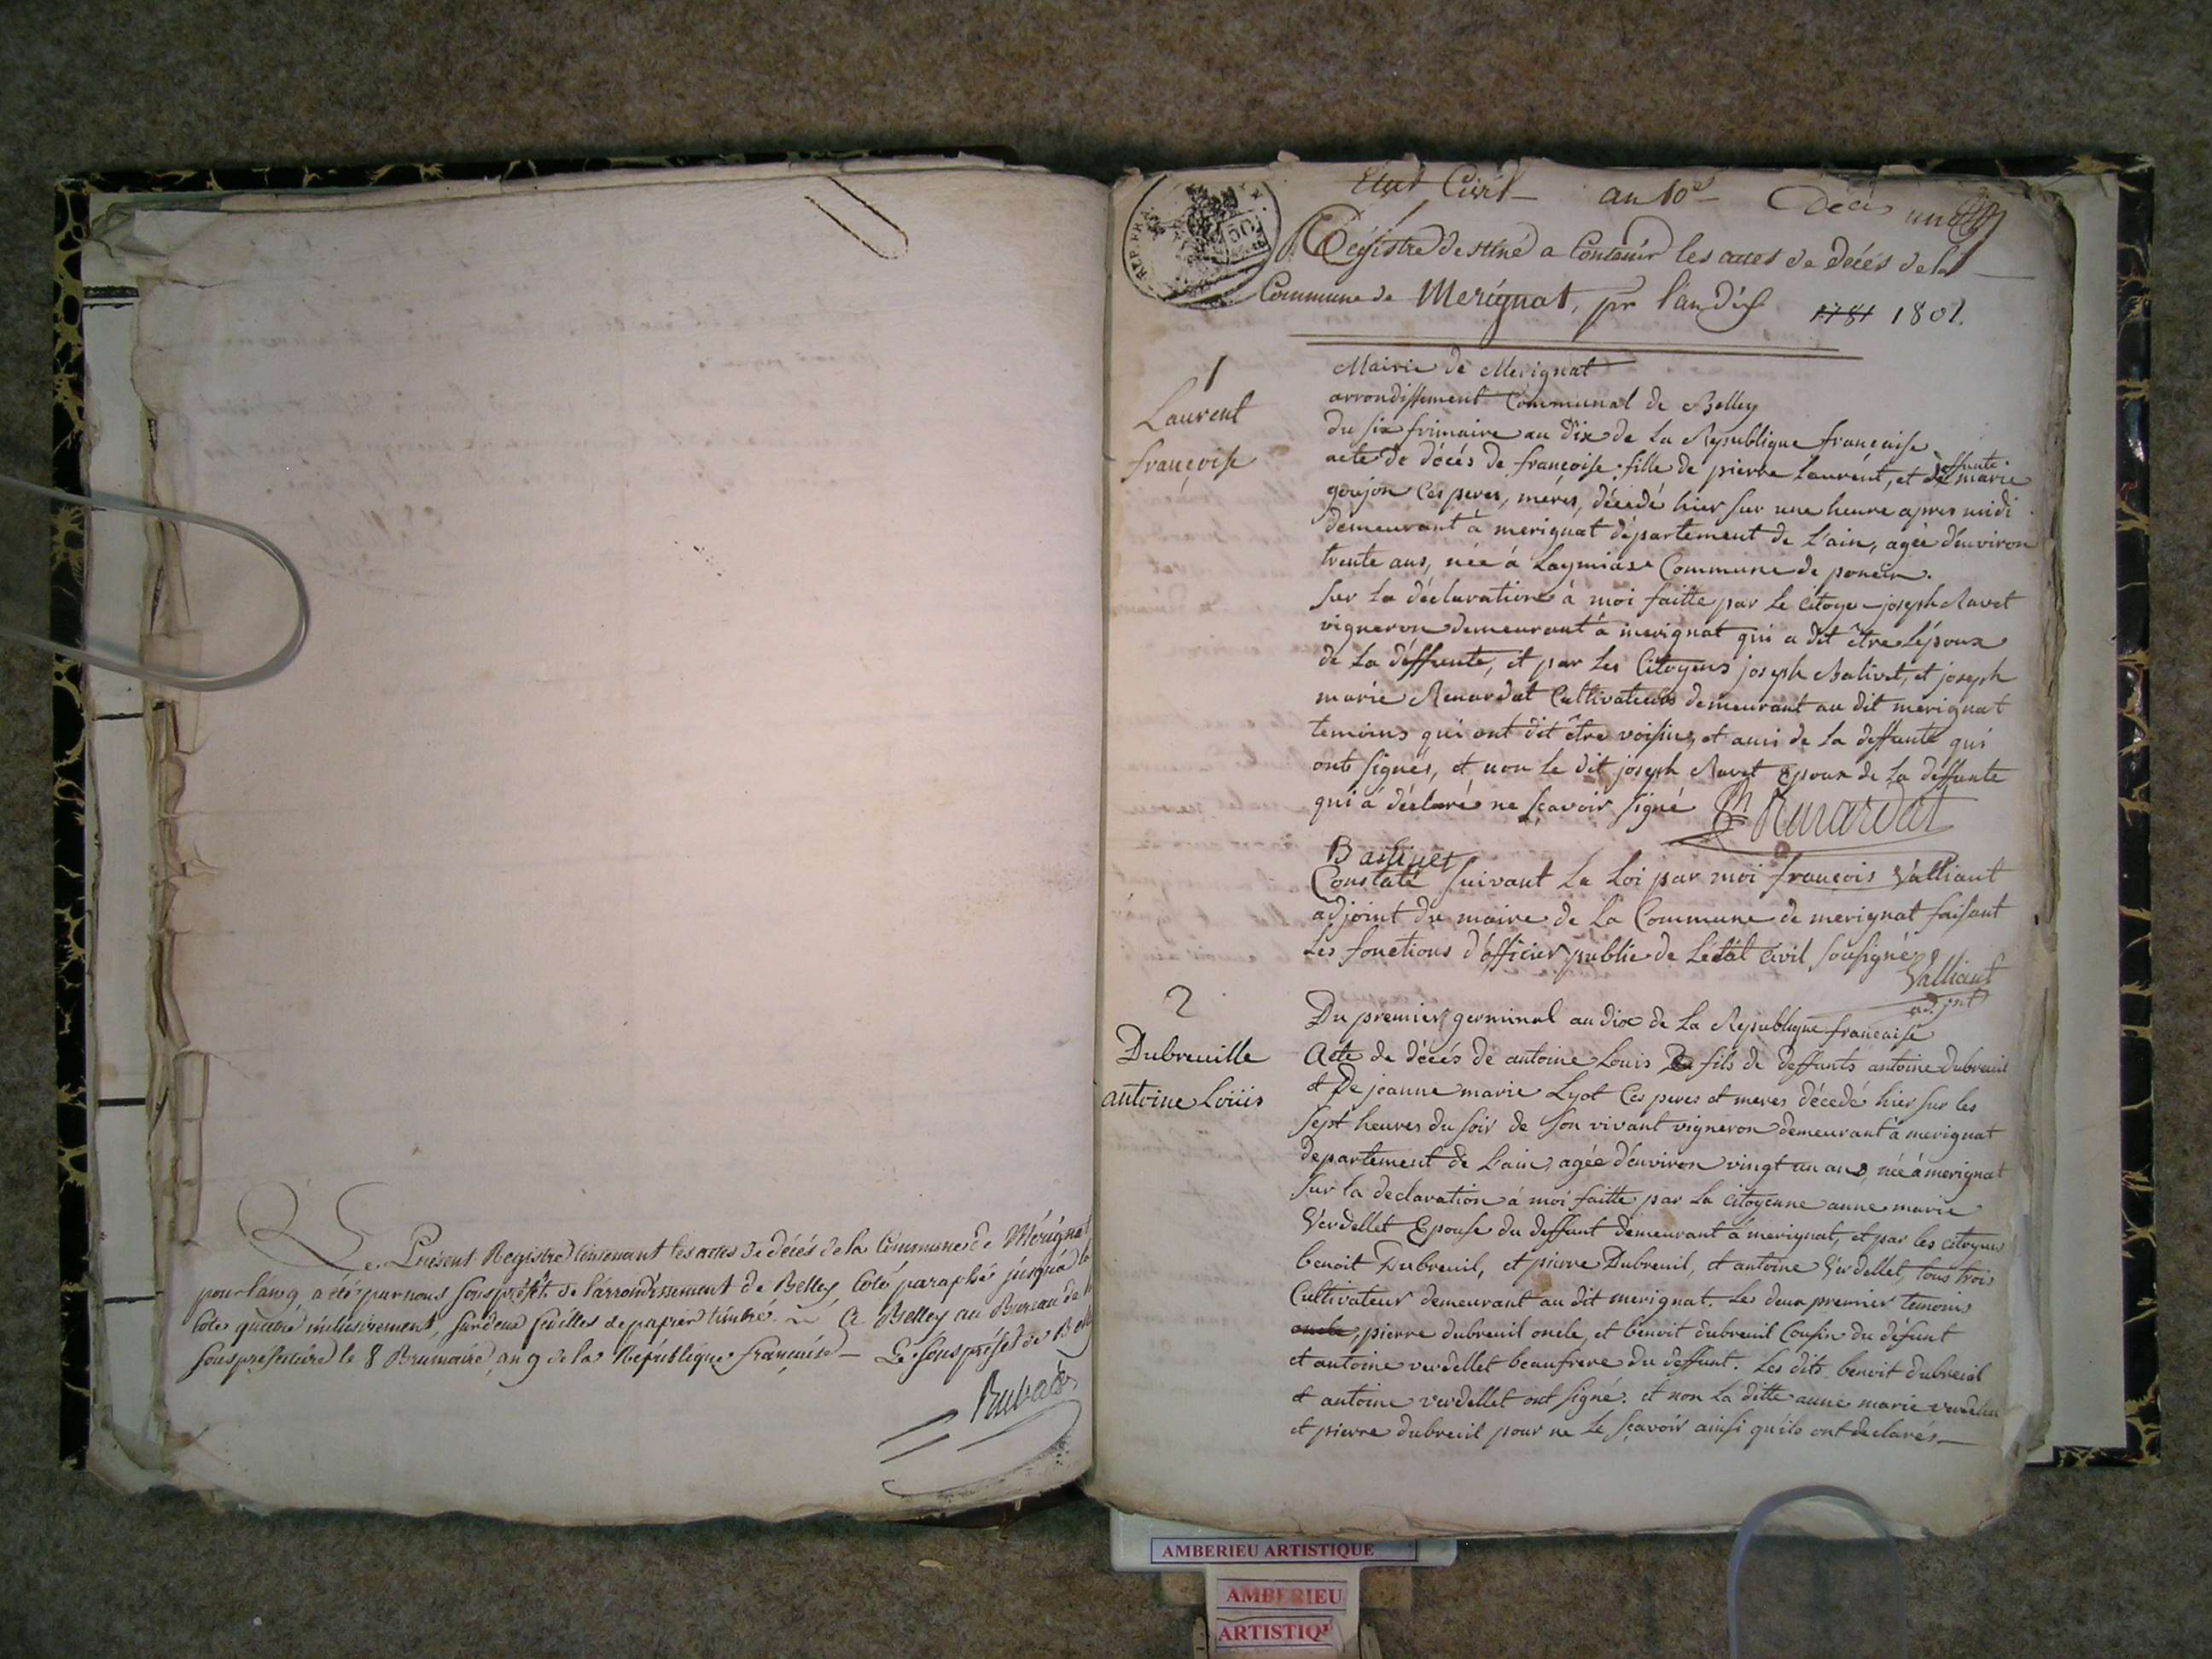 Le Présent Registre contenant les actes de décés de la Commune de Mérignat
pour l'an 9 a été par nous sous préfet de l'arrondissement de Belley, Coté paraphé jusqu'a la
cote quatre inclusivement, sur deux feuilles de papier timbré. A Belley au Bureau de la
sous prefecture le 8 Brumaire, an 9 de la République française - Le sous préfet de Belley
Etat Civil - an 10e - Décès un
REP. FRA.
50
Régistre destiné a Contenir les actes de Décés de la
Commune de Merignat, pr l'an dix 1781 1801.
1
Laurent
françoise
Mairie de Merignat
arrondissement Communal de Belley
du six frimaire an dix de la Republique française
acte de décés de françoise fille de pierre Laurent, et de deffunte marie
goujon Ces peres, méres, décedé hier sur une heure apres midi
demeurant à merignat département de L'ain, agée d'environ
trente ans, née à Commune de poncin.
sur la déclaration à moi faitte par le citoyen joseph Ravet
vigneron demeurant à merignat qui a dit être l'époux
de la deffunte, et par les Citoyens joseph Balivet, et joseph
marie Renardat Cultivateurs demeurant au dit merignat
temoins qui ont dit être voisins et ami de la deffunte qui
ont signés, et non le dit joseph Ravet Epoux de la deffunte
qui a déclaré ne sçavoir signé Renardat
Constaté suivant la Loi par moi françois Valliant
adjoint du maire de la Commune de merignat faisant
les fonctions d'officier public de L'état civil sousigné
Valliant
adjnt
2
Dubreuille
antoine Loüis
Du premier germinal an dix de la Republique française
Acte de décés de antoine Louis fils de deffunts antoine dubreuil
et De jeanne marie Lyot Ces peres et meres décedé hier sur les
sept heures du soir de son vivant vigneron demeurant à merignat
departement de L'ain, agée d'environ vingt un ans, née à merignat
sur la declaration à moi faitte par la citoyenne anne marie
Verdellet Epouse du deffunt demeurant à merignat, et par les citoyens
benoit Dubreuil, et pierre Dubreuil, et antoine Verdellet, tous trois
Cultivateur demeurant au dit merignat. Les deux premier temoins
oncle, pierre dubreuil oncle, et benoit dubreuil Cousin du défunt
et antoine verdellet beaufrere du deffunt. Les dits benoit dubreuil
et antoine verdellet ont signé. et non La ditte anne marie verdellet
et pierre dubreuil pour ne Le sçavoir ainsi qu'ils ont declarés
AMBERIEU ARTISTIQUE
AMBERIEU
ARTISTIQU